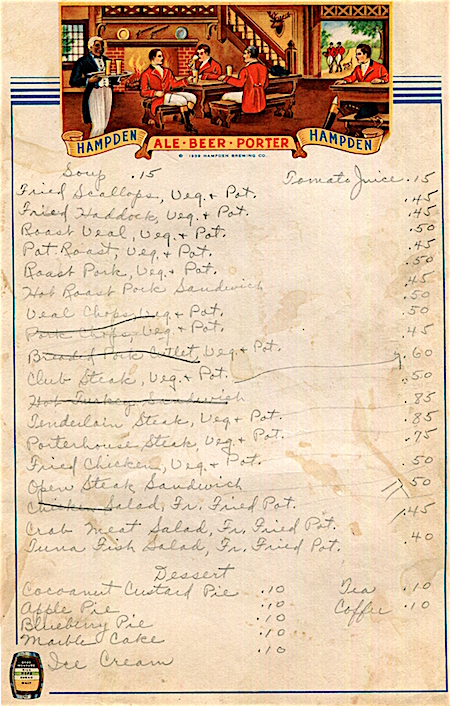 HAMPDEN ALE·BEER·PORTER HAMPDEN
© 1939 HAMPDEN BREWING CO.
Soup .15 Tomato Juice .15
Fried Scallops, Veg. + Pot. .45
Fried Haddock, Veg. + Pot. .45
Roast Veal, Veg. + Pot. .50
Pot Roast, Veg. + Pot. .45
Roast Pork, Veg. + Pot. .50
Hot Roast Pork Sandwich .45
Veal Chops, Veg. + Pot. .50
Pork Chops, Veg. + Pot. .50
Breaded Pork Cutlet, Veg. + Pot. .45
Club Steak, Veg. + Pot. .60
Hot Turkey Sandwich .50
Tenderloin Steak, Veg. + Pot. .85
Porterhouse Steak, Veg. + Pot. .85
Fried Chicken, Veg. + Pot. .75
Open Steak Sandwich .50
Chicken Salad, Fr. Fried Pot. .50
Crab Meat Salad, Fr. Fried Pot. .45
Tuna Fish Salad, Fr. Fried Pot. .40
Dessert
Cocoanut Custard Pie .10 Tea .10
Apple Pie .10 Coffee .10
Blueberry Pie .10
Marble Cake .10
Ice Cream .10